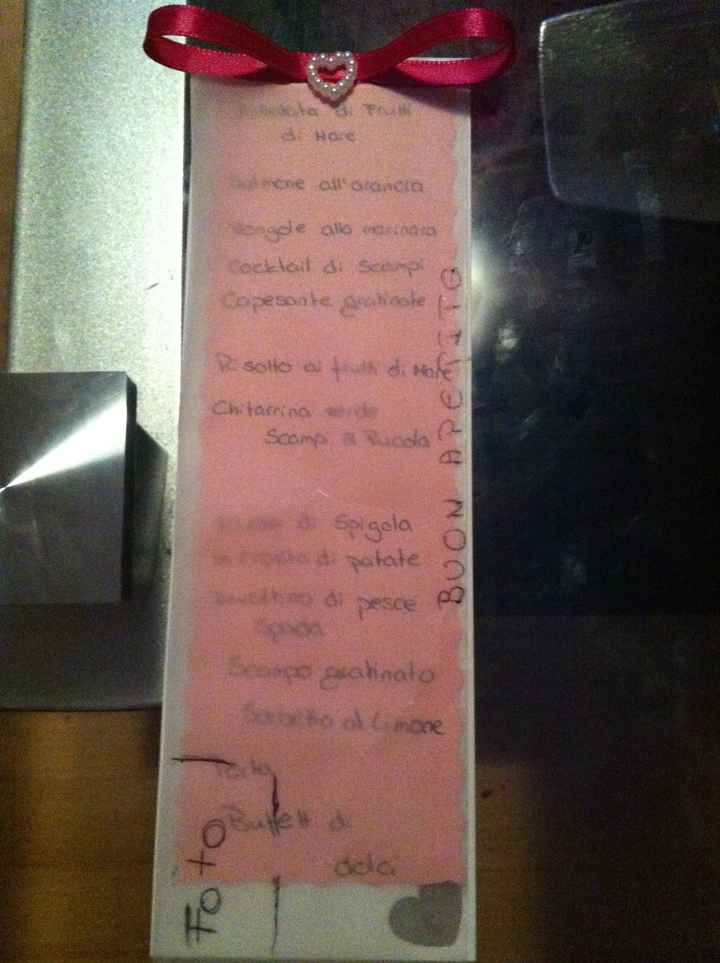 di Frutti
di Mare
Salmone all'arancia
Vongole alla marinara
Cocktail di Scampi
Capesante gratinate
Risotto ai frutti di Mare
Chitarrina verde
Scampi e Rucola
di Spigola
in crosta di patate
di pesce
Spada
Scampo gratinato
Sorbetto al Limone
Torta
Buffett di
dolci
BUON APPETITO
Foto